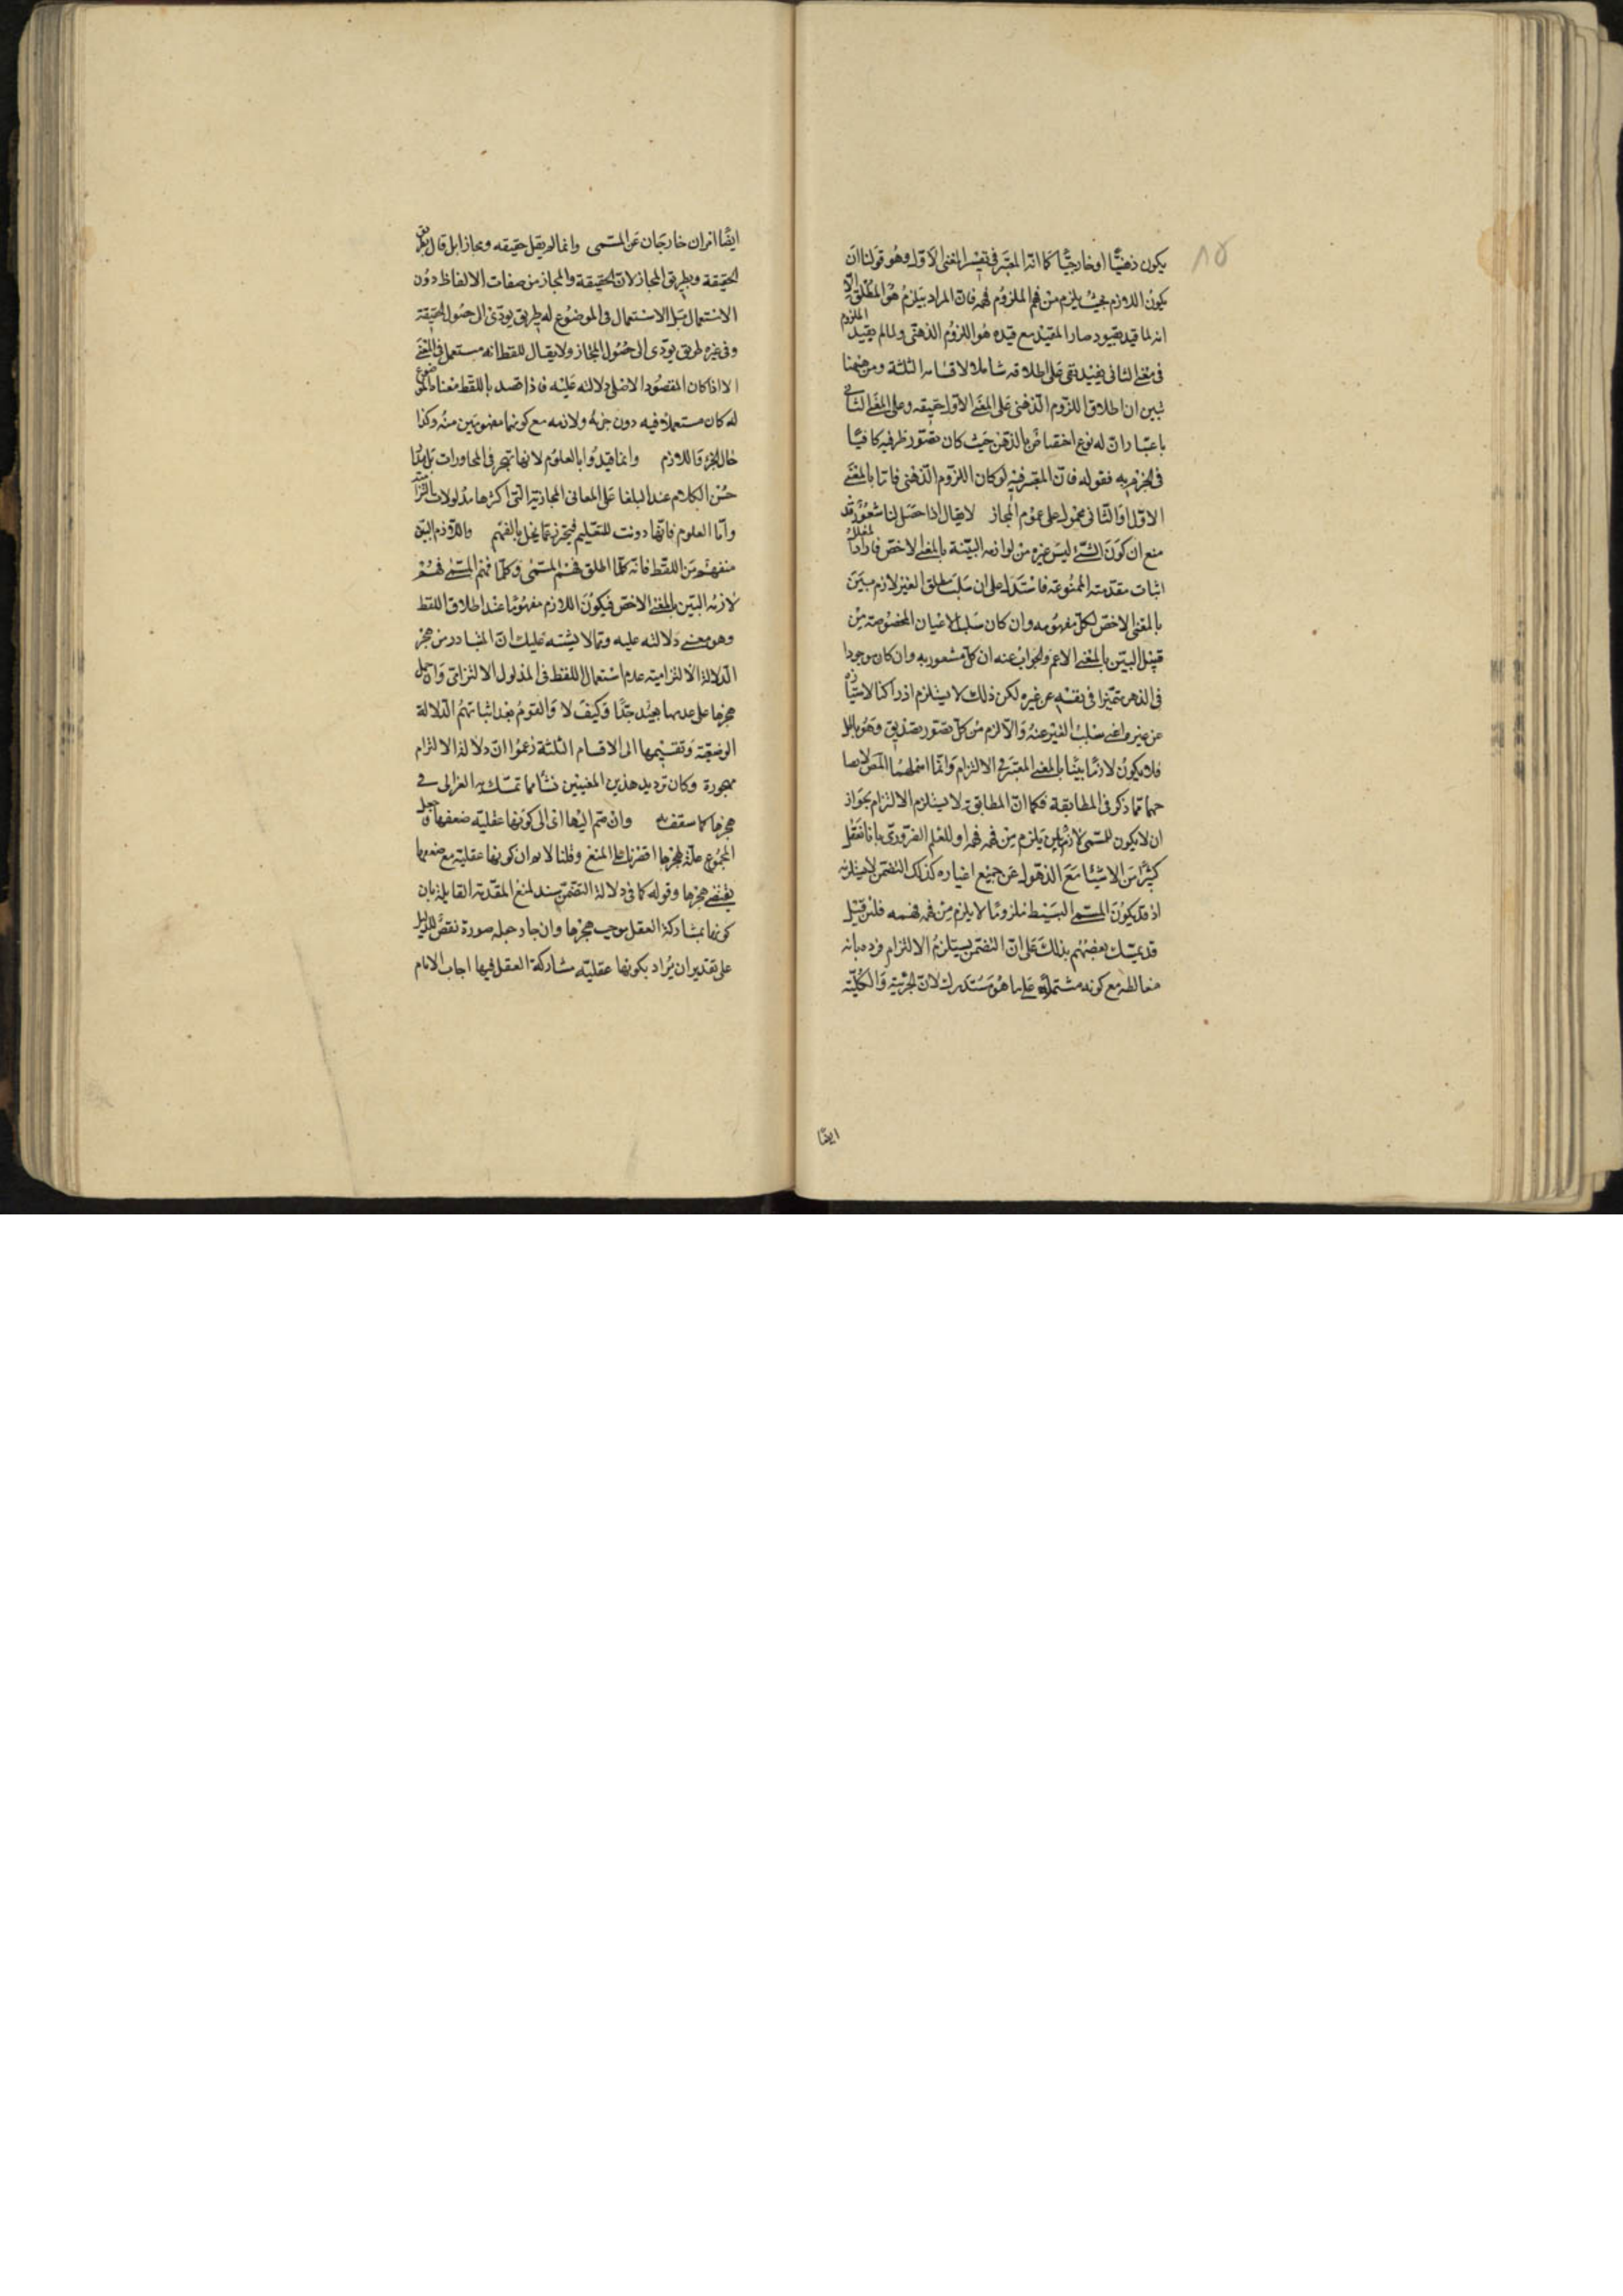 ١٥
يكون ذهنيّا او خارجيّا كما انه المعتبر في تفسير المعنى الاول وهو قولنا ان
يكون اللازم بحيث يلزم من فهم الملزوم فهمه فان المراد بيلزم هو المطلق الا
انه لما قيد بقيود صار المقيد مع قيده هو اللزوم الذهني ولما لم يقيد الملزوم
في معنى الثاني بقيد بقي على اطلاقه شاملا لاقسامه الثلثة ومن ههنا
تبين ان اطلاق اللزوم الذهني على المعنى الاول حقيقه وعلى المعنى الثاني
باعتبار ان له نوع اختصاص بالذهن حيث كان تصور طرفيه كافيا
في الجزم به فقوله فان المعتبر فيه لو كان اللزوم الذهني فاما بالمعنى
الاول او الثاني محمول على عموم المجاز لا يقال اذا حصل لنا شعور قد
منع ان كون الشئ ليس غيره من لوازمه البينة بالمعنى الاخص فاراد
اثبات مقدمته الممنوعة فاستدل على ان سلب مطلق الغير لازم بين
بالمعنى الاخص لكل مفهوم وان كان سلب الاغيار المخصوصة من
قبيل البين بالمعنى الاعم والجواب عنه ان كل مشعور به وان كان موجودا
في الذهن متميزا في نفسه عن غيره لكن ذلك لا يستلزم ادراكنا لامتيازه
عن غيره اعني سلب الغير عنه والا لزم من كل تصور تصديق وهو باطل
فلا يكون لازما بينا بالمعنى المعتبر في الالتزام وانما اهملهما المص لاتضا
حهما مما ذكر في المطابقة فكما ان المطابقة لا يستلزم الالتزام بجواز
ان لا يكون للمسمى لازم بين يلزم من فهمه فهمه او للعلم الضروري بانا نعقل
كثيرا من الاشيا مع الذهول عن جميع اغياره كذلك التضمن لا يستلزمه
اذ قد يكون المسمى البسيط ملزوما لا يلزم من فهمه فهمه فلئن قيل
قد تمسك بعضهم بذلك على ان التضمن يستلزم الالتزام فرده بانه
مغالطة مع كونه مشتملة على ما هو مستدرك لان الجزئية والكلية
ايضا
ايضا امران خارجان عن المسمى وانما لم يقل حقيقه ومجازا بل قال بطريق
الحقيقة وبطريق المجاز لان الحقيقة والمجاز من صفات الالفاظ دون
الاستعمال بل الاستعمال في الموضوع له طريق يودي الى حصول الحقيقة
وفي غيره طريق يودي الى حصول المجاز ولا يقال للفظ انه مستعمل في المعنى
الا اذا كان المقصود الاصلي دلالته عليه فاذا قصد باللفظ معناه الموضوع
له كان مستعملا فيه دون جزئه ولازمه مع كونهما مفهومين منه وكذا
حال الجزء واللازم وانما قيدوا بالعلوم لانها تهجر في المحاورات بل
حسن الكلام عند البلغا على المعاني المجازية التي اكثرها مدلولات التزا
واما العلوم فانها دونت للتعليم فيتحرز عما يخل بالفهم واللازم البين
منفهم من اللفظ فانه كلما اطلق فهم المسمى وكلما فهم المسمى فهم
لازمه البين بالمعنى الاخص فيكون اللازم مفهوما عند اطلاق اللفظ
وهو معنى دلالته عليه ومما لا يشتبه عليك ان المتبادر من هجر
الدلالة الالتزامية عدم استعمال اللفظ في المدلول الالتزامي وان حمل
هجرها على عدمها بعيد جدا وكيف لا والقوم بعد اثباتهم الدلالة
الوضعية وتقسيمها الى الاقسام الثلثة زعموا ان دلالة الالتزام
مهجورة وكان ترديد هذين المعنيين نشأ مما تمسك به الغزالي في
هجرها كما ستقف وان ضم اليها اي الى كونها عقلية ضعفها وجعل
المجموع علة لهجرها اقتصرنا على المنع وقلنا لا نم ان كونها عقلية مع ضعفها
يقتضي هجرها وقوله كما في دلالة التضمن سند لمنع المقدمة القايلة بان
كونها بمشاركة العقل يوجب هجرها وان جاز جعله صورة نقض للدليل
على تقدير ان يراد بكونها عقلية مشاركة العقل فيها اجاب الامام